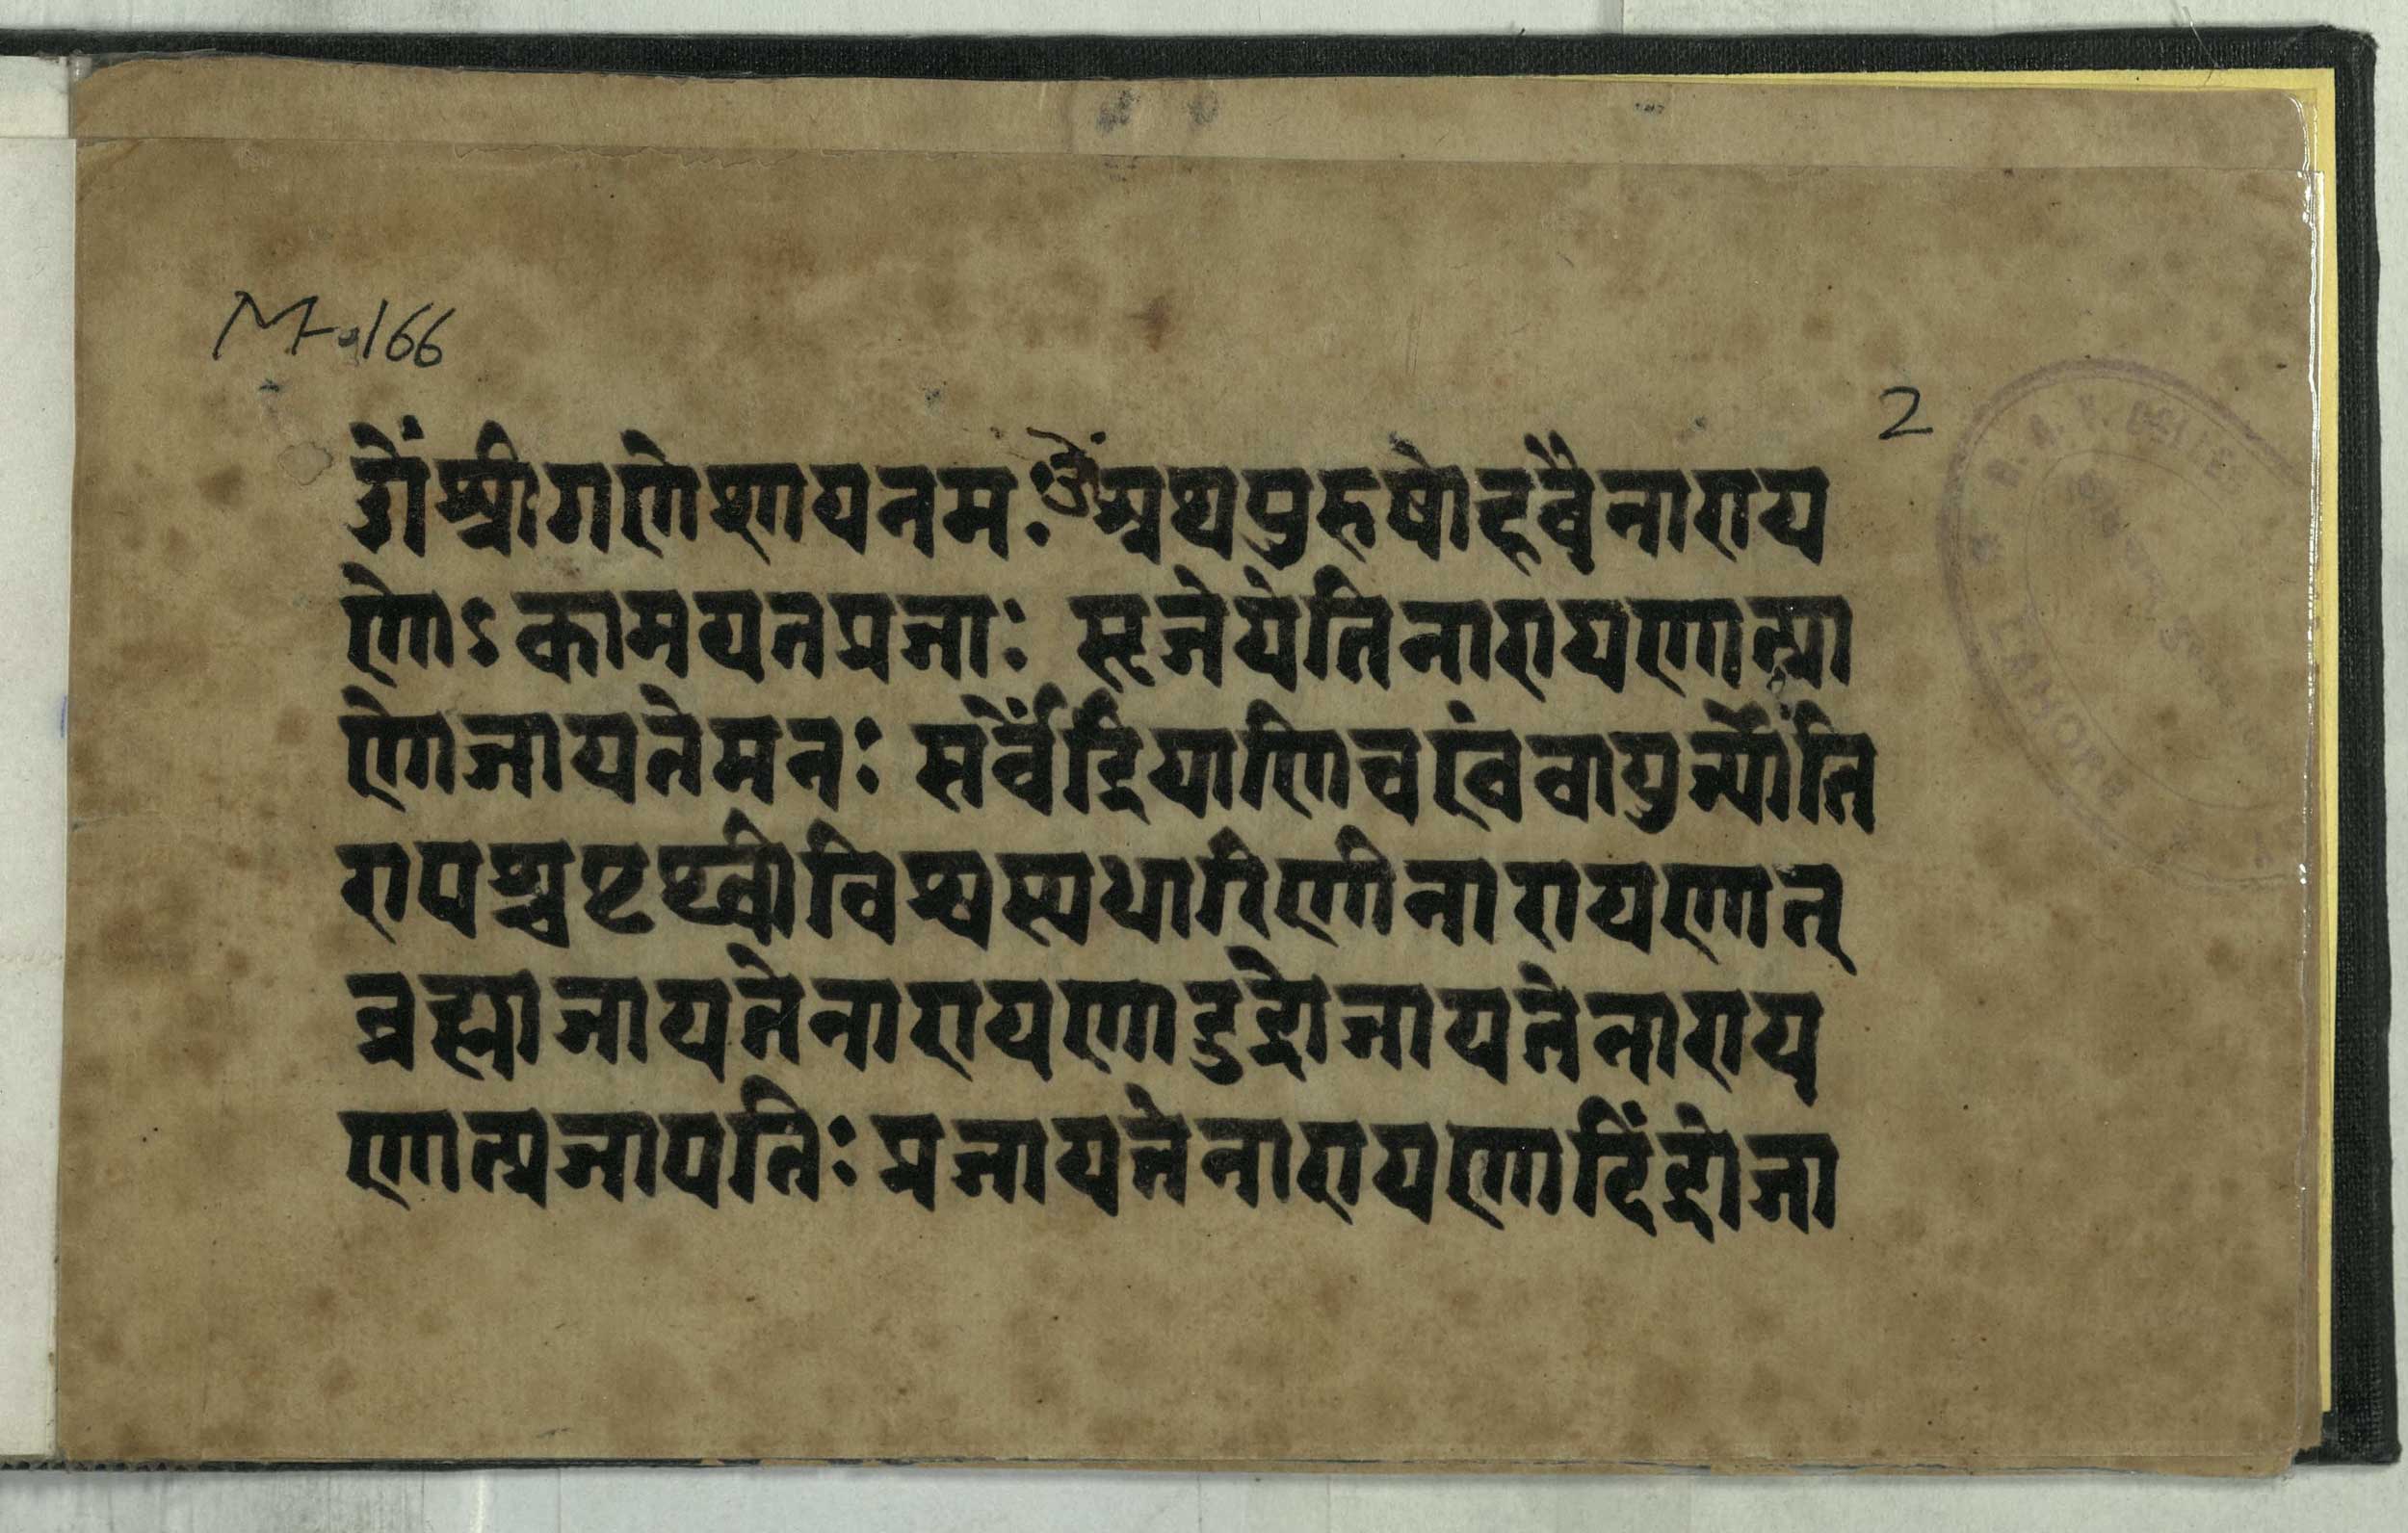 M-166
2
ॐ श्रीगणेशायनमः ॐ अथपुरुषोहवैनाराय
णोऽकामयतप्रजाः सृजेयेतिनारायणात्प्रा
णोजायतेमनः सर्वेंद्रियाणिचखंवायुर्ज्योति
रापश्चपृथ्वीविश्वस्यधारिणीनारायणात्
ब्रह्माजायतेनारायणाद्रुद्रोजायतेनाराय
णात्प्रजापतिः प्रजायतेनारायणादिंद्रोजा
LAHORE